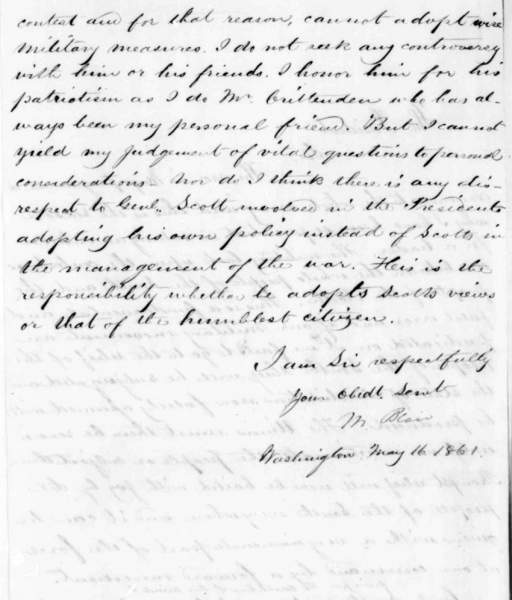 contest and for that reason, cannot adopt wise
military measures. I do not seek any controversy
with him or his friends. I honor him for his
patriotism as I do Mr. Crittenden who has al-
ways been my personal friend. But I cannot
yield my judgement of vital questions to personal
considerations. Nor do I think there is any dis-
respect to Genl. Scott involved in the Presidents
adopting his own policy instead of Scotts in
the management of the war. His is the
responsibility whether he adopts Scotts views
or that of the humblest citizen.
I am Sir respectfully
Your Obdt. Servt
M. Blair
Washington May 16 1861.